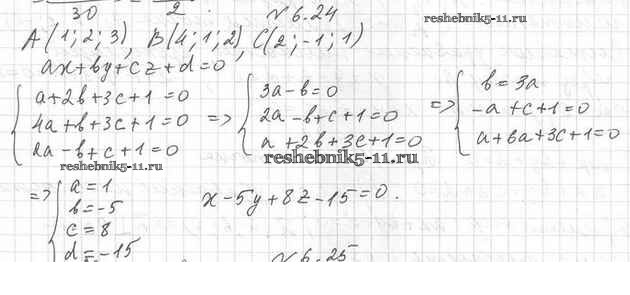 30 2 . №6.24
reshebnik5-11.ru
A(1;2;3), B(4;1;2), C(2;-1;1)
ax+by+cz+d=0
{ a+2b+3c+1=0
4a+b+3c+1=0
2a-b+c+1=0
=> { 3a-b=0
2a-b+c+1=0
a+2b+3c+1=0
=> { b=3a
-a+c+1=0
a+6a+3c+1=0
reshebnik5-11.ru
=> { a=1
b=-5
c=8
d=-15
x-5y+8z-15=0.
№6.25